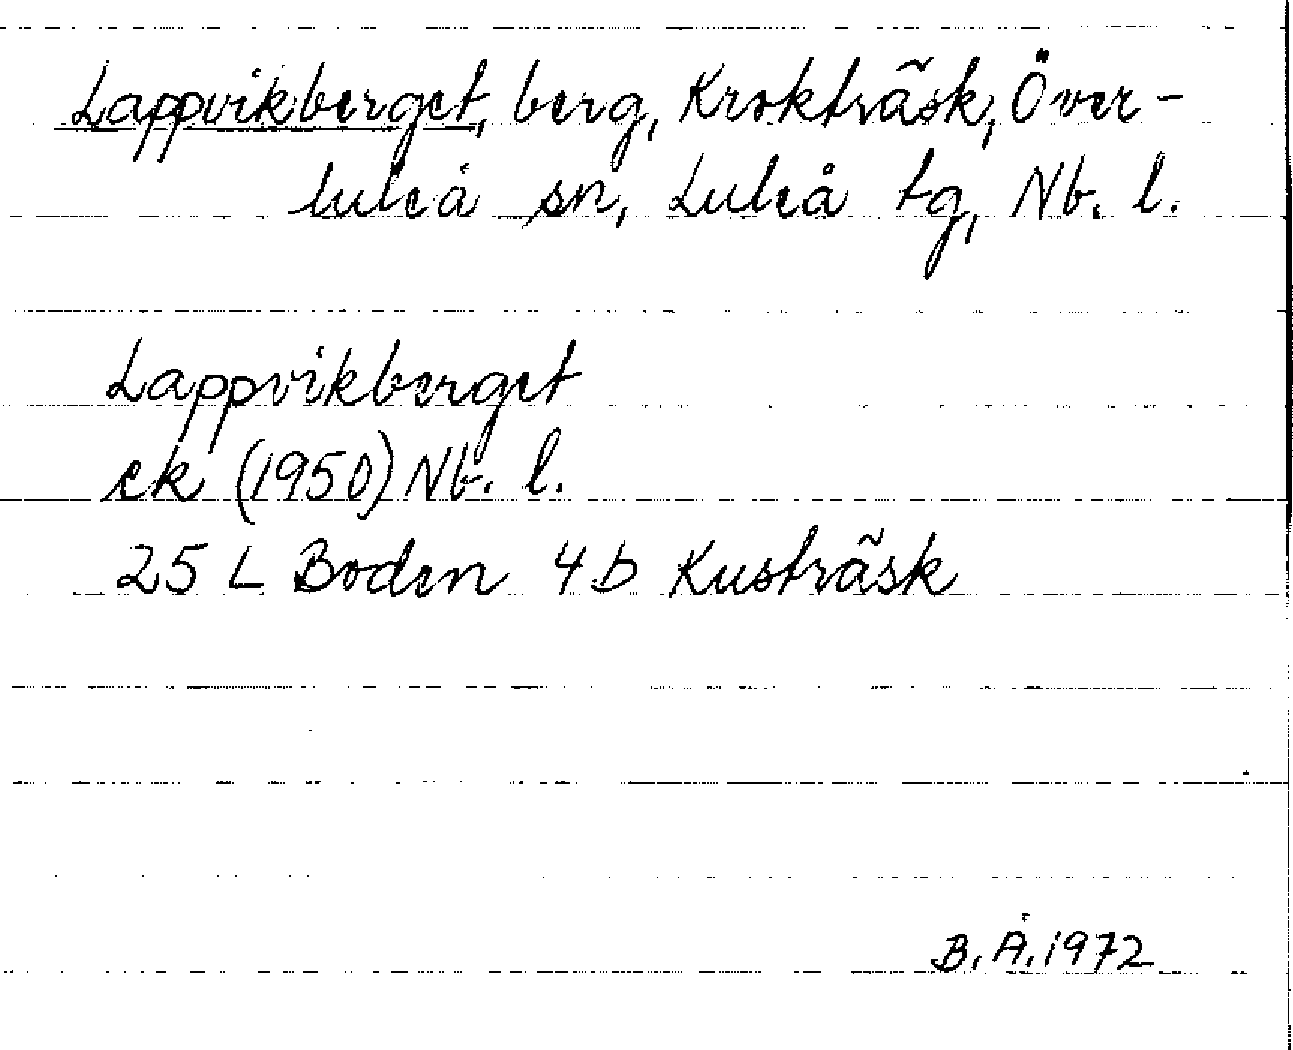 Lappvikberget, berg, Krokträsk, Över-
luleå sn, Luleå tg, Nb. l.
Lappvikberget
ek (1950) Nb. l.
25 L Boden 4 b Kusträsk
B. Å. 1972